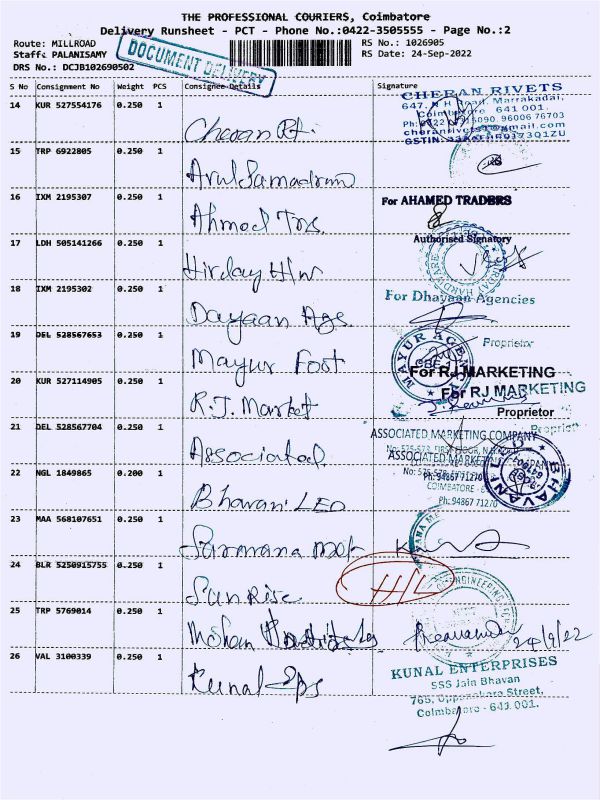 THE PROFESSIONAL COURIERS, Coimbatore
Delivery Runsheet - PCT - Phone No.:0422-3505555 - Page No.:2
Route: MILLROAD
RS No.: 1026905
Staff: PALANISAMY
RS Date: 24-Sep-2022
DRS No.: DCJB102690502
DOCUMENT DELIVERY
S No Consignment No Weight PCS Consignee Details Signature
14 KUR 527554176 0.250 1
CHERAN RIVETS
647, N H Road, Marrakadai,
Coimbatore 641 001.
cheranrivets1@gmail.com
15 TRP 6922805 0.250 1
16 IXM 2195307 0.250 1 Ahmed Trs.
For AHAMED TRADERS
Authorised Signatory
17 LDH 505141266 0.250 1 Hirday H/w
18 IXM 2195302 0.250 1 Dayaan Ags.
For Dhayaan Agencies
Proprietor
19 DEL 528567653 0.250 1 Mayur Foot
MAYUR AGEN
20 KUR 527114905 0.250 1 R.J. Market
For RJ MARKETING
For RJ MARKETING
Proprietor
Propriet
21 DEL 528567704 0.250 1 Associated
ASSOCIATED MARKETING COMPANY
ASSOCIATED MARKETING COMPANY
COIMBATORE
Ph: 94867 71270
Ph: 94867 71270
22 NGL 1849865 0.200 1 Bhavani LED
BHAVANI
23 MAA 568107651 0.250 1
24 BLR 5250915755 0.250 1 Sunrise
H/L
ENGINEERING
25 TRP 5769014 0.250 1 Mohan
24/9/22
26 VAL 3100339 0.250 1 Kunal Eps
KUNAL ENTERPRISES
SSS Jain Bhavan
765, Oppanakara Street,
Coimbatore - 641 001.